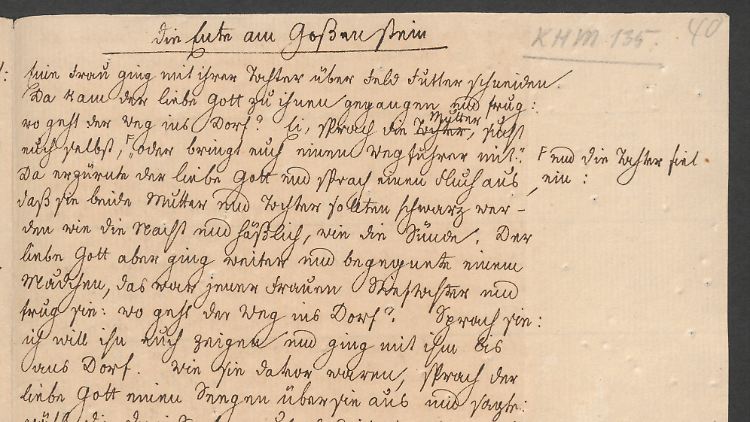 die Ente am Goßenstein
KHM 135.
40
Eine Frau ging mit ihrer Tochter über Feld Futter schneiden.
Da kam der liebe Gott zu ihnen gegangen und frug:
wo geht der Weg ins Dorf? Ei, sprach die Tochter, sucht
Mutter
euch selbst, ⌈„oder bringt euch einen Wegführer mit.“
⌈ und die Tochter fiel
Da erzürnte der liebe Gott und sprach einen Fluch aus
ein:
daß sie beide Mutter und Tochter sollten schwarz wer-
den wie die Nacht und häßlich, wie die Sünde. Der
liebe Gott aber ging weiter und begegnete einem
Mädchen, das war jener Frauen Stieftochter und
frug sie: wo geht der Weg ins Dorf? Sprach sie:
ich will ihn euch zeigen und ging mit ihm bis
ans Dorf. Wie sie davor waren, sprach der
liebe Gott einen Seegen über sie aus und sagte: